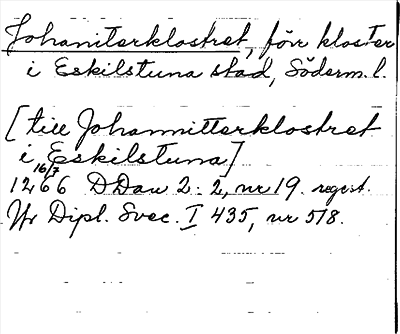 Johanniterklostret, förr kloster
i Eskilstuna stad, Söderm. l.
[till Johannitterklostret
i Eskilstuna]
1266 16/7 DDan 2: 2, nr 19. regest.
Ur Dipl. Svec. I 435, nr 518.